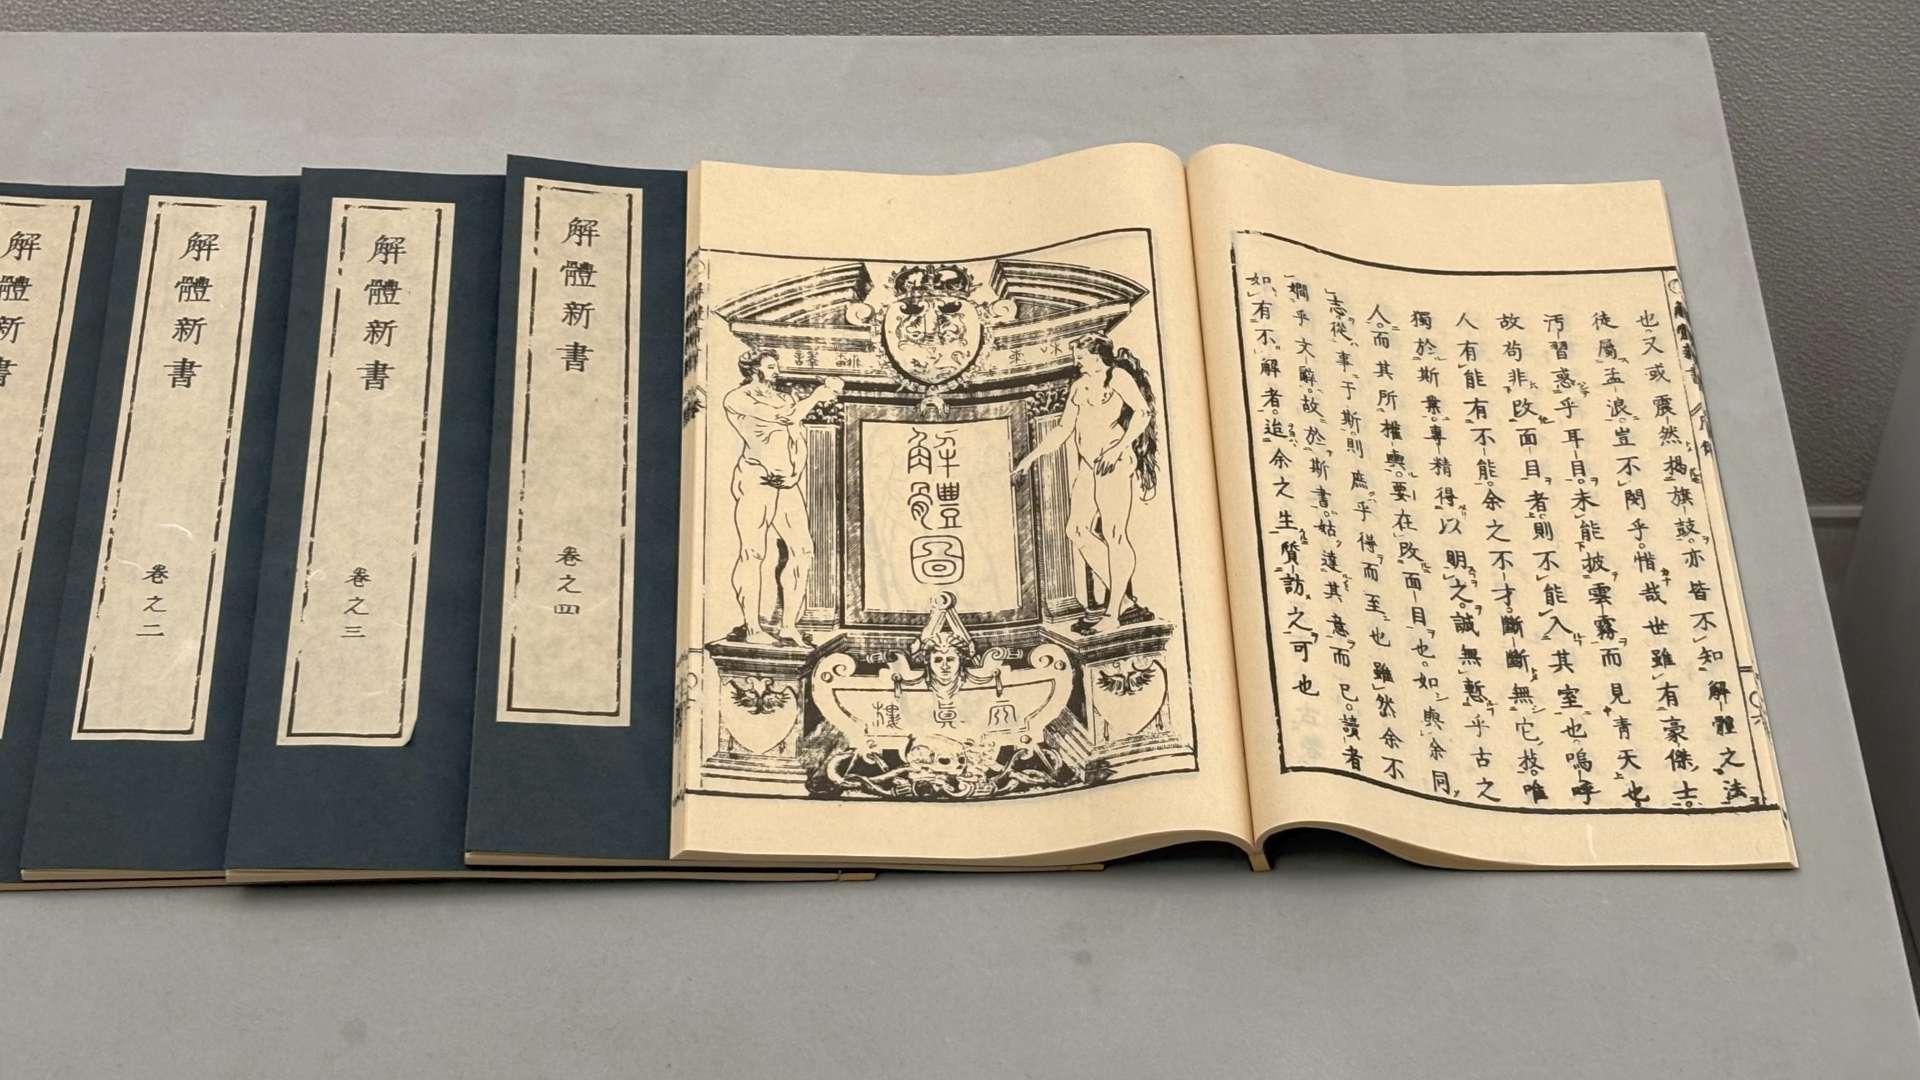 解體新書
解體新書
卷之二
解體新書
卷之三
解體新書
卷之四
解體圖
也又或震然揭旗鼓亦皆不知解體之法
徒屬孟浪豈不閔乎惜哉世雖有豪傑士
汚習惑乎耳目未能披雲霧而見青天也
故苟非改面目者則不能入其室也嗚呼
人有能有不能余之不才斷斷無它技唯
獨於斯業專精得以明之誠無慙乎古之
人而其所推輿要在改面目也如輿余同
志從事于斯則庶乎得而至也雖然余不
嫺乎文辭故於斯書姑達其意而已讀者
如有不解者迨余之生質訪之可也